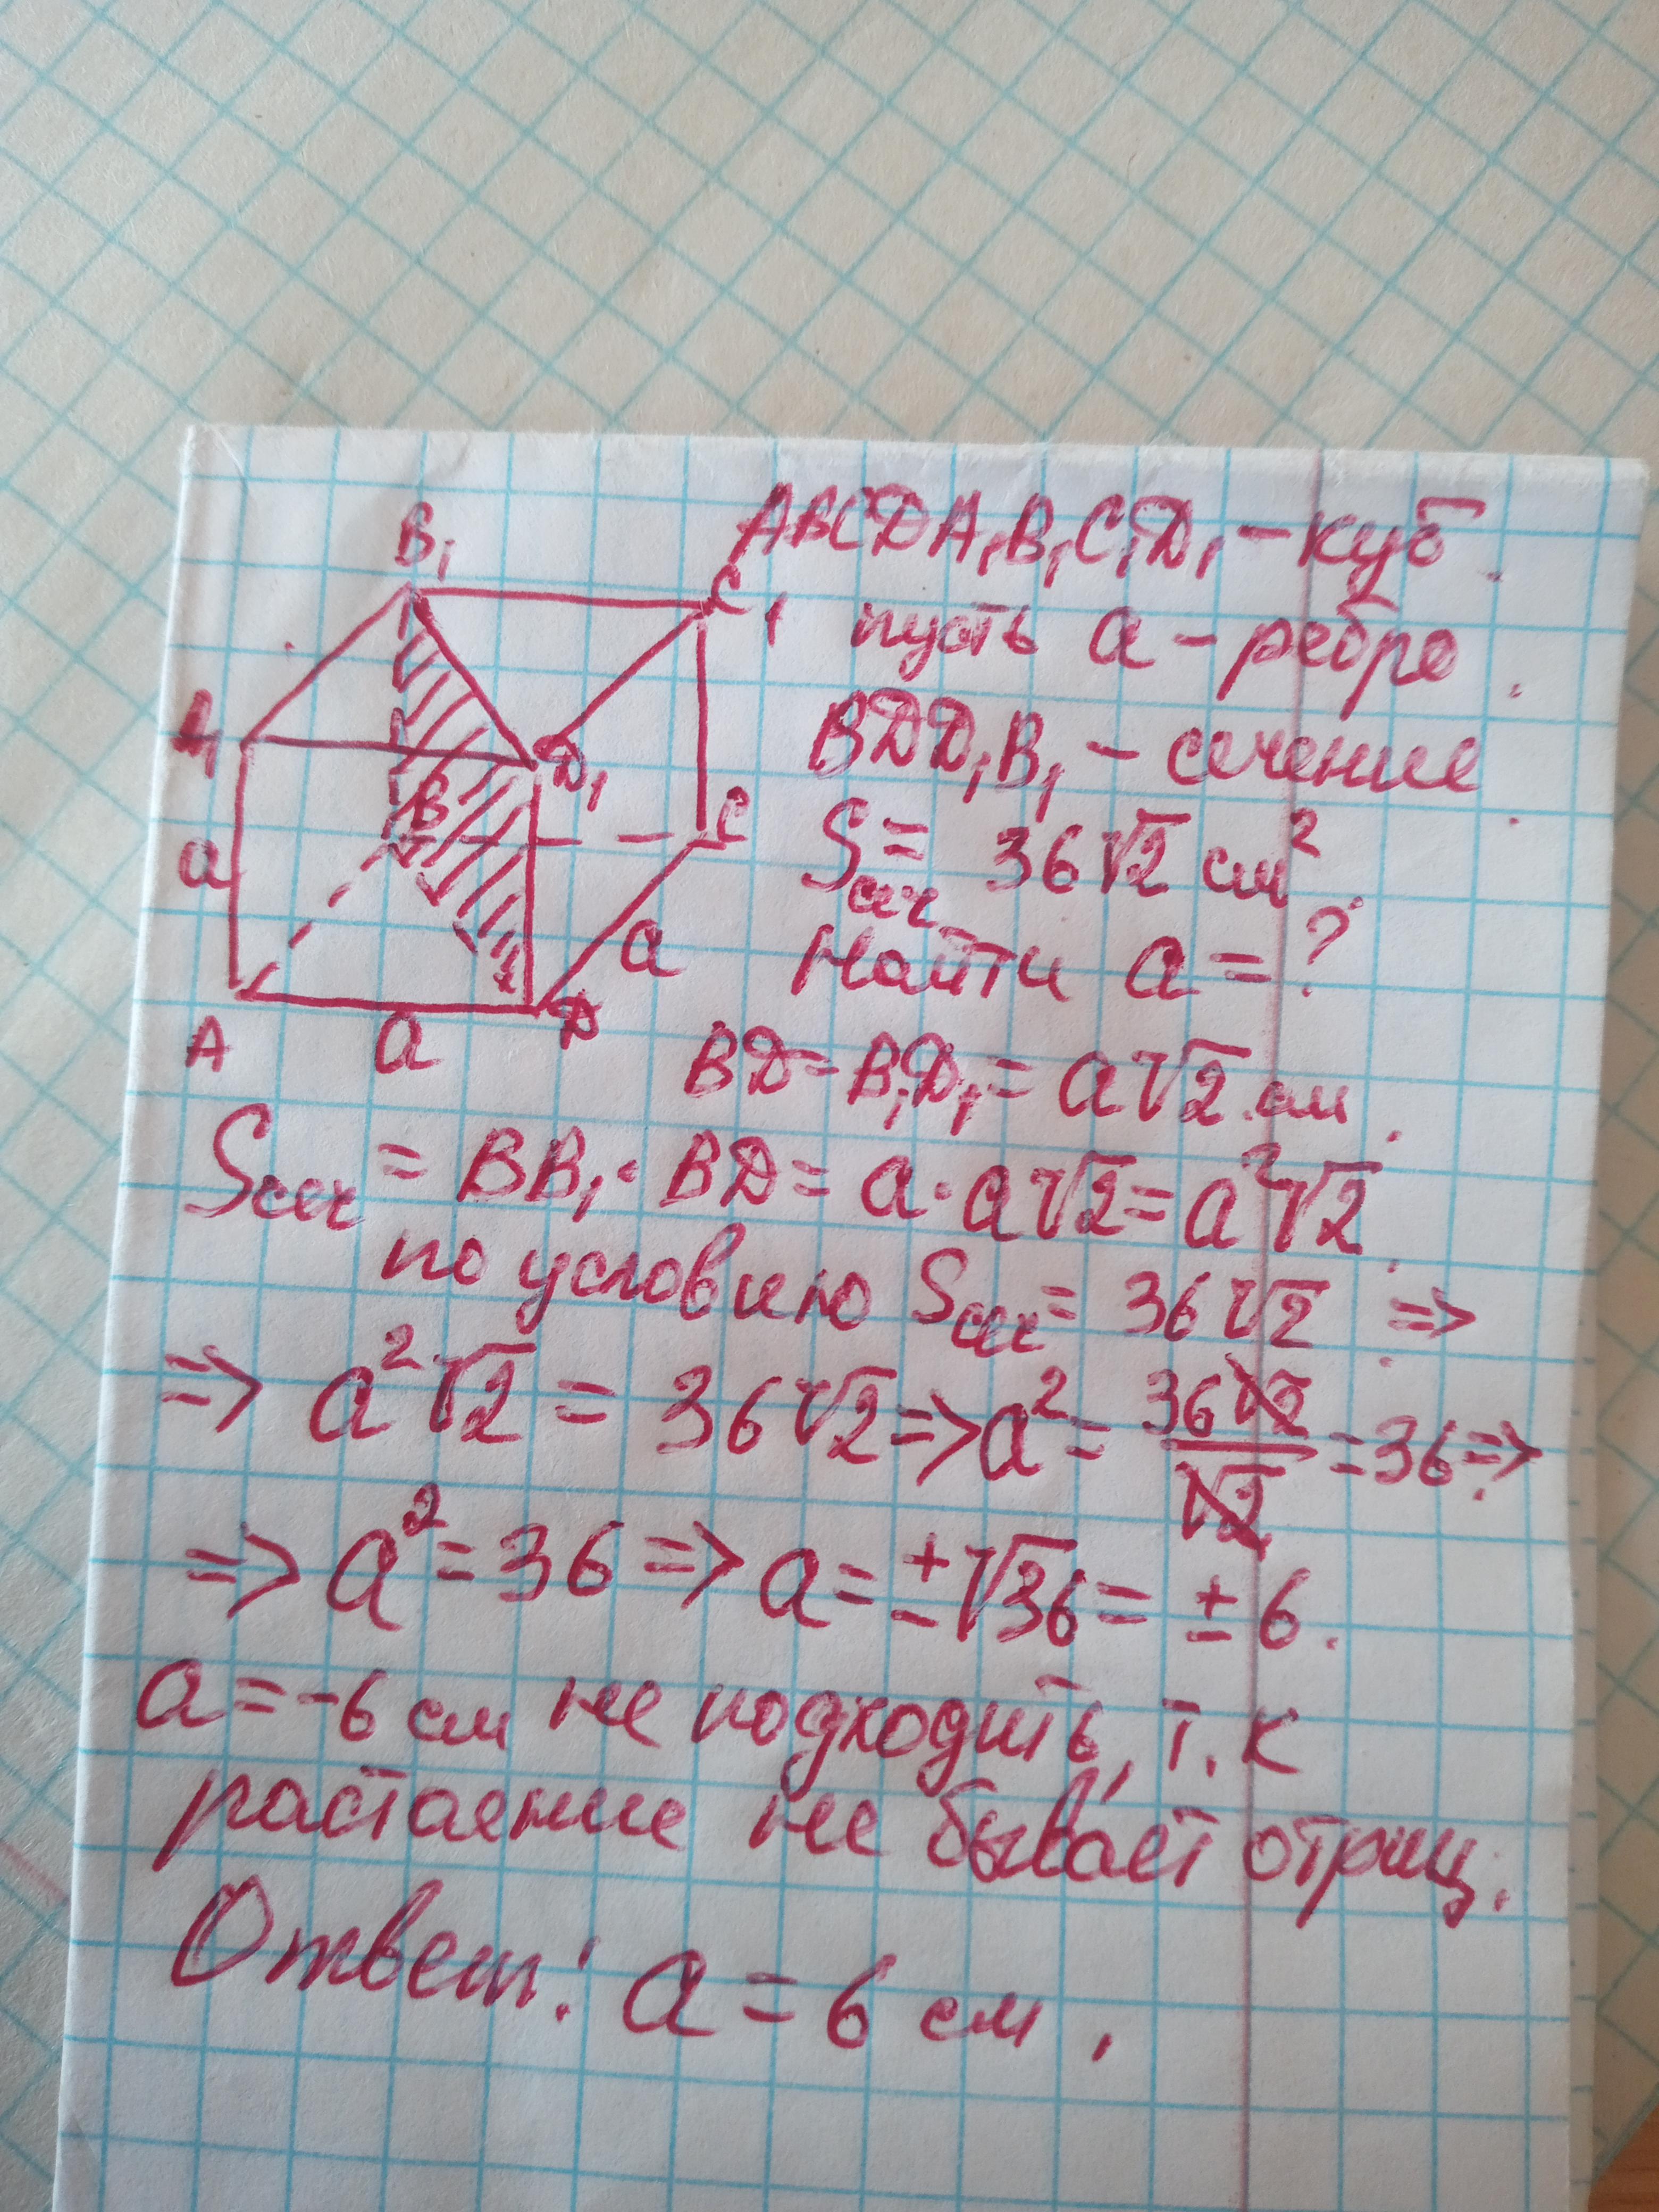 B₁
C₁
A₁
D₁
B
C
a
a
A
a
D
ABCDA₁B₁C₁D₁ – куб.
пусть a – ребро.
BDD₁B₁ – сечение.
Sсеч = 36√2 см².
Найти a = ?
BD = B₁D₁ = a√2 см.
Sсеч = BB₁ · BD = a · a√2 = a²√2.
по условию Sсеч = 36√2 =>
=> a²√2 = 36√2 => a² = 36√2/√2 = 36 =>
=> a² = 36 => a = ±√36 = ±6.
a = -6 см не подходить, т. к
растаение не бывает отриц.
Ответ: a = 6 см.